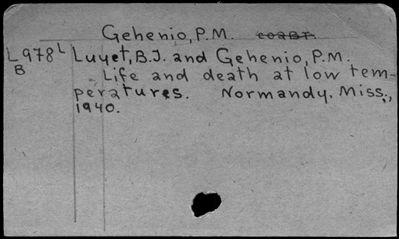 Gehenio, P.M. coaut.
L978L Luyet, B.J. and Gehenio, P.M.
B Life and death at low tem-
peratures. Normandy, Miss.,
1940.